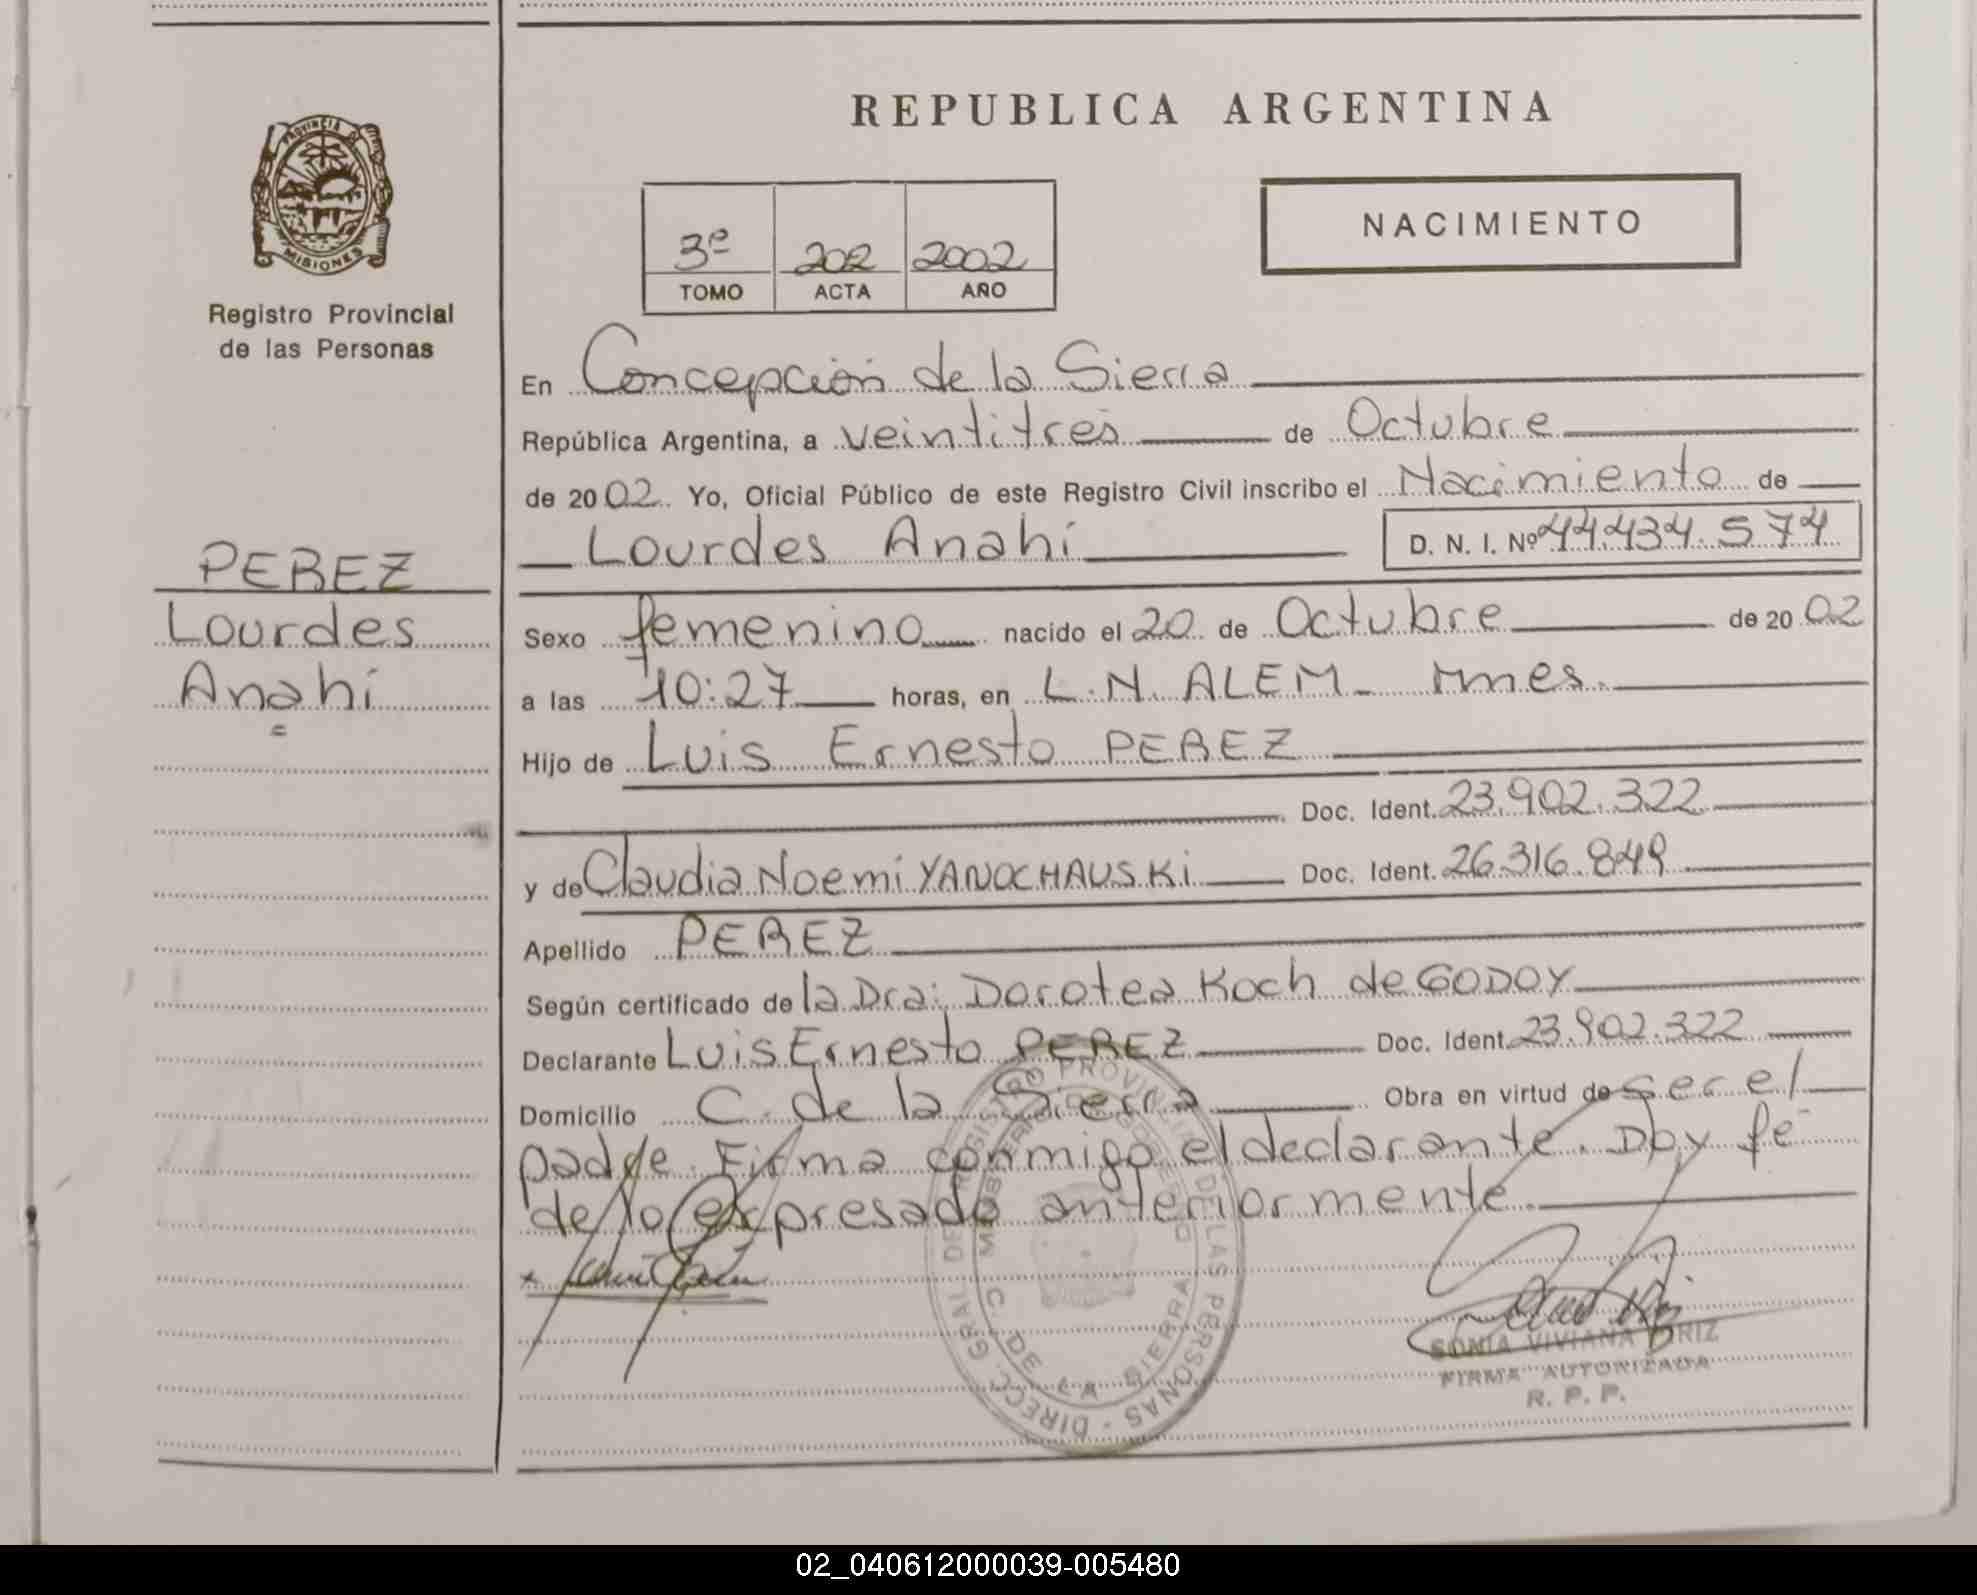 REPUBLICA ARGENTINA
PROVINCIA DE MISIONES
Registro Provincial
de las Personas
3º 202 2002
TOMO ACTA AÑO
NACIMIENTO
En Concepción de la Sierra
República Argentina, a veintitres de Octubre
de 2002. Yo, Oficial Público de este Registro Civil inscribo el Nacimiento de
Lourdes Anahí D. N. I. Nº 44.434.574
PEREZ
Lourdes
Anahí
Sexo femenino nacido el 20 de Octubre de 2002
a las 10:27 horas, en L.N. ALEM - Mnes.
Hijo de Luis Ernesto PEREZ
Doc. Ident. 23.902.322
y de Claudia Noemí YANOCHAUSKi Doc. Ident. 26.316.849
Apellido PEREZ
Según certificado de la Dra: Dorotea Koch de GODOY
Declarante Luis Ernesto PEREZ Doc. Ident. 23.902.322
Domicilio C. de la Sierra Obra en virtud de ser el
padre. Firma conmigo el declarante. Doy fe
de lo expresado anteriormente.
DIRECC. GRAL DE REGISTRO PROVINCIAL DE LAS PERSONAS
C. DE LA SIERRA
SONIA VIVIANA BRIZ
FIRMA AUTORIZADA
R. P. P.
02_040612000039-005480